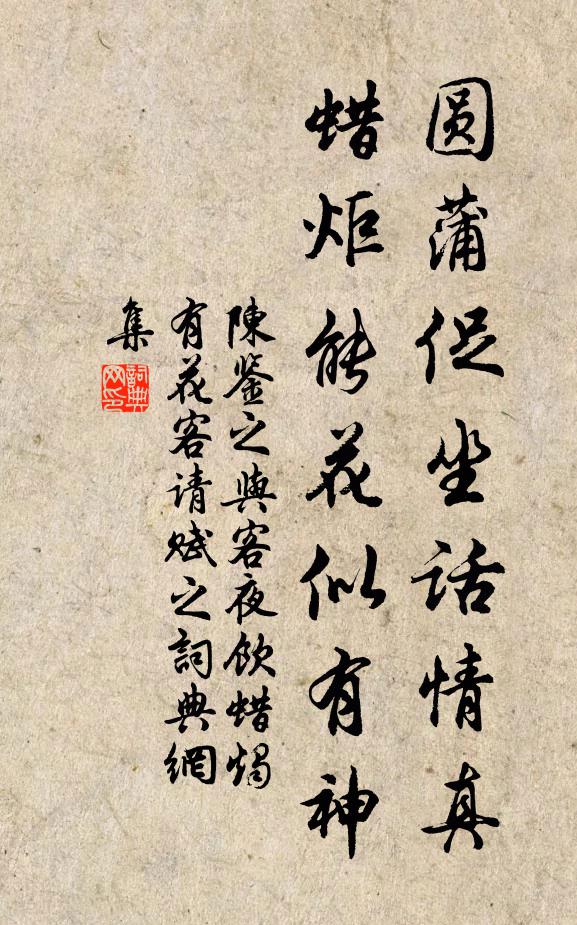 圆蒲促坐话情真
蜡炬能花似有神
陳鉴之與客夜饮蜡燭
有花客请赋之詞典網
集
詞典
网印